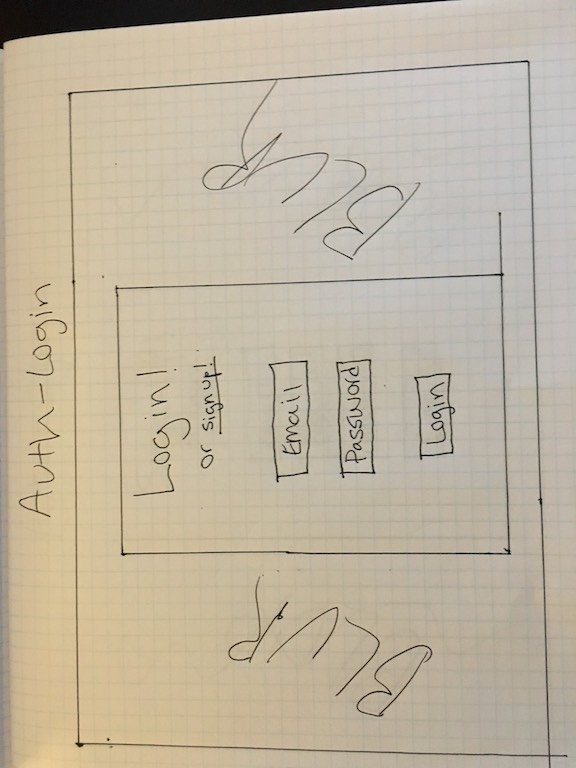 Auth-Login
BLUR
Login!
or signup!
Email
Password
Login
BLUR